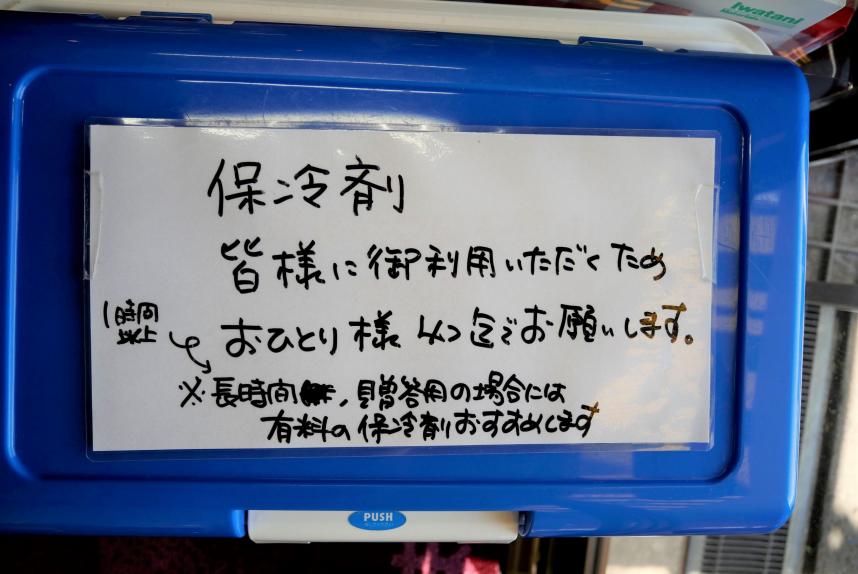 Iwatani
保冷剤
皆様に御利用いただくため
おひとり様 4つ迄でお願いします。
1時間
以上
※長時間、贈答用の場合には
有料の保冷剤おすすめします
PUSH